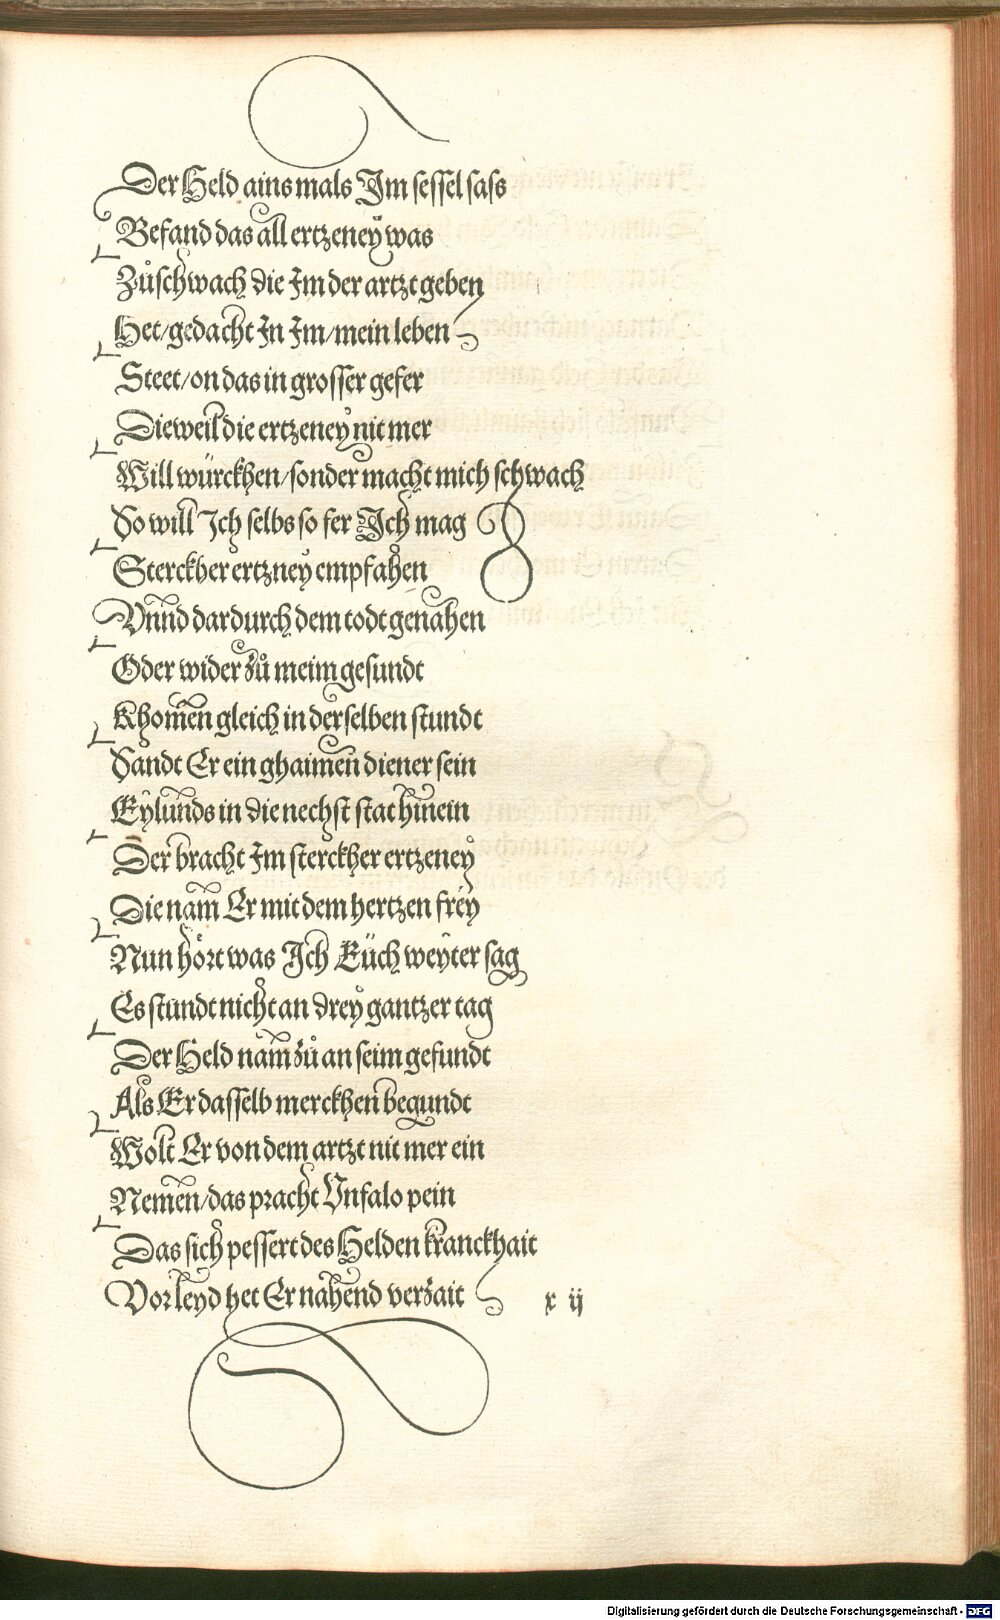 Der Held ains mals Im sessel sass
Befand das all ertzeneÿ was
Zůschwach die Im der artzt geben
Het/gedacht In Im/mein leben
Steet/on das in grosser gefer
Dieweil die ertzeneÿ nit mer
Will würckhen/sonder macht mich schwach
So will Ich selbs so fer Ich mag
Sterckher ertzneÿ empfahen
Vnnd dardurch dem todt genahen
Oder wider zů meim gesundt
Khomen gleich in derselben stundt
Sandt Er ein ghaimen diener sein
Eÿlunds in die nechst stat hinein
Der bracht Im sterckher ertzeneÿ
Die nam Er mit dem hertzen freÿ
Nun hört was Ich Eüch weÿter sag
Es stundt nicht an dreÿ gantzer tag
Der Held nam zů an seim gesundt
Als Er dasselb merckhen begundt
Wolt Er von dem artzt nit mer ein
Nemen/das pracht Vnfalo pein
Das sich pessert des Helden kranckhait
Vor leyd het Er nahend verzait
x ij
Digitalisierung gefördert durch die Deutsche Forschungsgemeinschaft - DFG